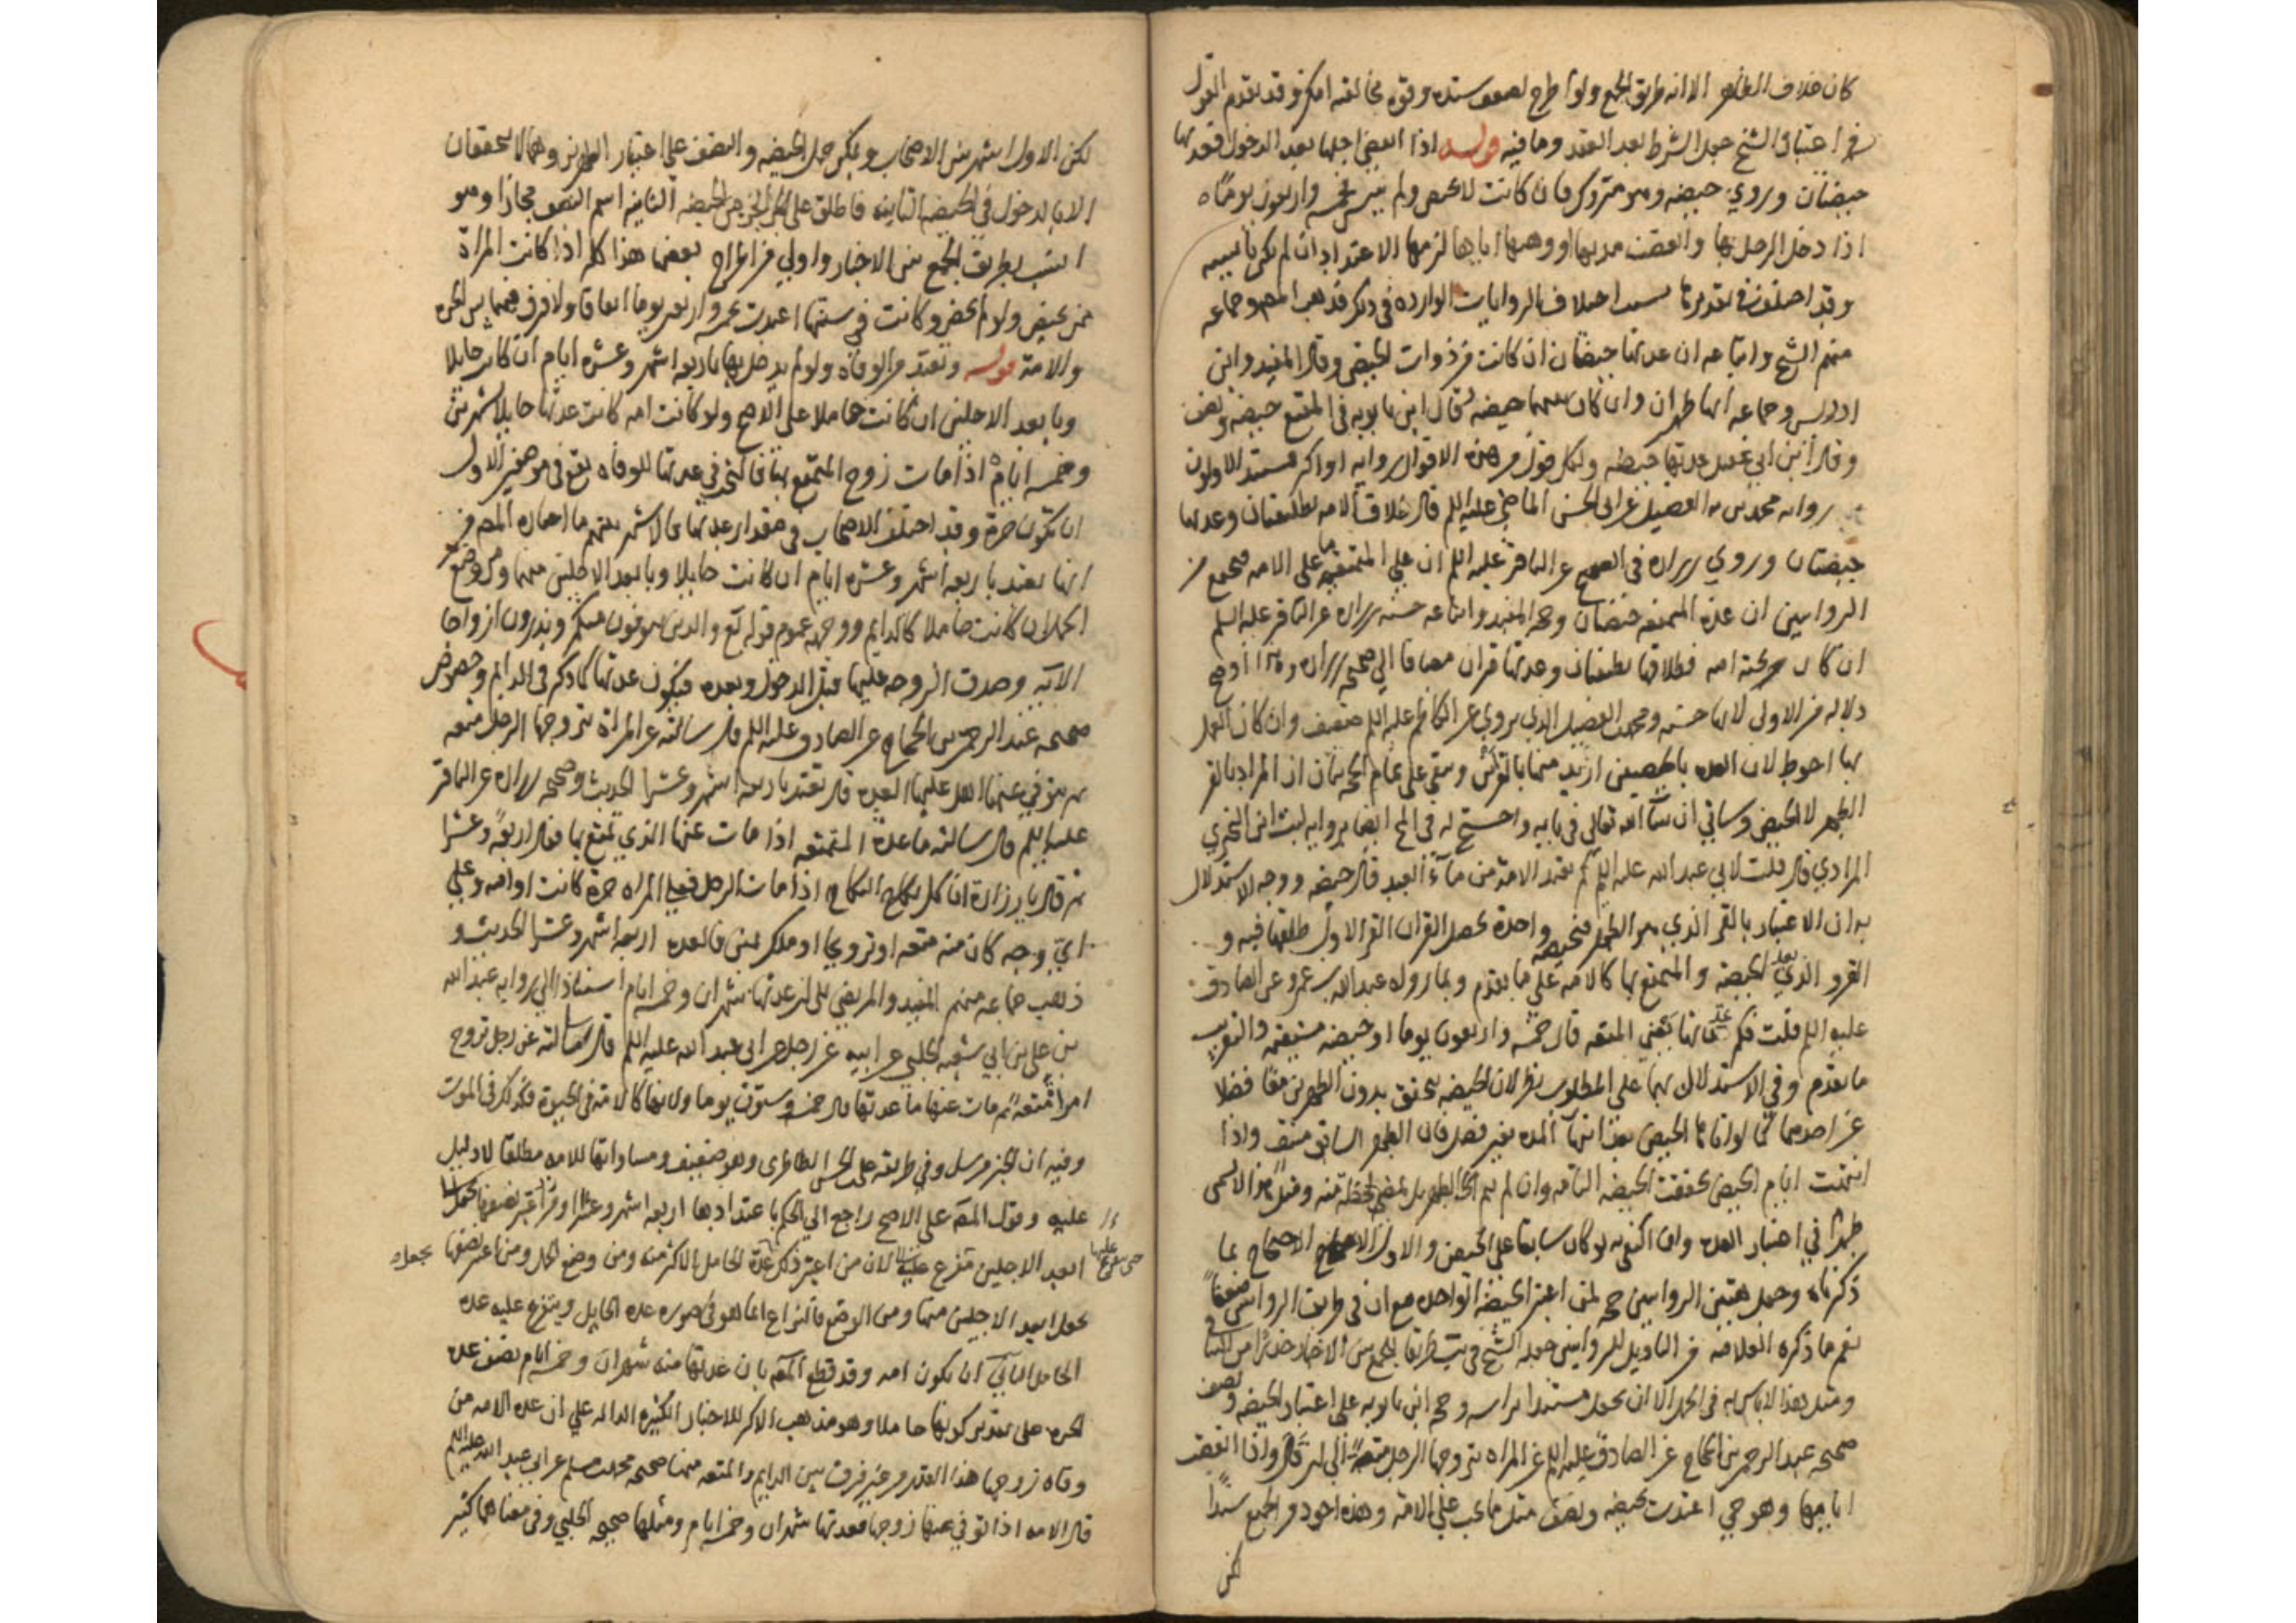 كان خلاف الظاهر الا انه طريق الجمع ولو اطرح لضعف سنده وقوة مخالفه امكن وقد تقدم القول
في اعتبار الشيخ جعل الشرط بعد العقد وما فيه قوله اذا انقضى اجلها بعد الدخول فعدتها
حيضتان وروي حيضه وهو متروك فان كانت لا تحيض ولم تيئس فخمسة واربعون يوما
اذا دخل الرجل بها وانقضت مدتها او وهبها اياها لزمها الاعتداد ان لم تكن يائسه
وقد اختلف في تقديرها بسبب اختلاف الروايات الوارده في ذلك فذهب المصـ وجماعه
منهم الشيخ واتباعه ان عدتها حيضتان ان كانت من ذوات الحيض وقال المفيد وابن
ادريس وجماعه انها طهران وان كان بينهما حيضه وقال ابن بابويه في المقنع حيضه ونصف
وقال ابن ابي عقيل عدتها حيضه ولكل قول من هذه الاقوال روايه او اكثر مستند الاولون
روايه محمد بن الفضيل عن ابي الحسن الماضي عليه السلم قال طلاق الامه تطليقتان وعدتها
حيضتان وروي زراره في الصحيح عن الباقر عليه السلم ان على المتمتعه ما على الامه فمجموع
الروايتين ان عدة المتمتعه حيضتان وحجه المفيد واتباعه حسنه زراره عن الباقر عليه السلم
ان كان حر تحته امه فطلاقها تطليقتان وعدتها قران مضافا الي صحيحه زراره وهذا اوضح
دلاله من الاولى لانها حسنه ومحمد بن الفضيل الذي يروي عن الكاظم عليه السلم ضعيف وان كان العمل
بها احوط لان العده بالحيضتين ازيد منها بالقرئين
الطهر لا الحيض وسياتي ان شآ الله تعالى في بابه واحتج له في المخ ايضا بروايه ليث ابن البختري
المرادي قال قلت لابي عبد الله عليه السلم كم تعتد الامة من مآء العبد قال حيضه ووجه الاستدلال
به ان الاعتبار بالقرء الذي هو الطهر فبحيضه واحدة يحصل القران القرء الاول طلقها فيه و
القرو الذي بعد الحيضه والمتمتع بها كالامه على ما تقدم وبما رواه عبد الله بن عمرو عن الصادق
عليه السلم قلت فكم عدتها يعني المتعه قال خمسة واربعون يوما او حيضه مستقيمه والتقريب
ما تقدم وفي الاستدلال بهما على المطلوب نظر لان الحيضه تتحقق بدون الطهرين معا فضلا
عن احدهما كما لو اتاها الحيض بعد انتهآ المده بغير فصل فان الطهر السابق منتف واذا
انتهت ايام الحيض تحققت الحيضه التامه وان لم يتم الطهر بل بمضي لحظة منه ومثل هذا لا يسمى
طهرا في اعتبار العده وانما اكتفي به لو كان سابقا على الحيض والاولى الاحتجاج بما
ذكرناه وحمل هتين الروايتين حجه لمن اعتبر الحيضة الواحده مع ان في طريق الروايتين ضعفا
نعم ما ذكره العلامه في التاويل للروايتين جعله الشيخ في يب طريقا للجمع بين الاخبار حذرا من التنافي
ومثل هذا لا باس به في الحمل لا ان يجعل مستندا براسه وحجه ابن بابويه على اعتبار الحيضه ونصف
صحيحه عبد الرحمن بن الحجاج عن الصادق عليه السلم عن المراه يتزوجها الرجل متعة الي ان قال واذا انقضت
ايامها وهو حي اعتدت بحيضه ونصف مثل ما يجب على الامة وهذه اجود من الجميع سندا
لكن
لكن الاول اشهر بين الاصحاب ويمكن حمل الحيضه والنصف على اعتبار الطهرين وهما لا يتحققان
الا بالدخول في الحيضه الثانيه فاطلق على الجزء من الحيضه الثانيه اسم النصف مجازا وهو
انسب بطريق الجمع بين الاخبار واولي من اطراح بعضها هذا كله اذا كانت المراة
ممن تحيض ولو لم تحض وكانت في سنها اعتدت بخمسه واربعين يوما اتفاقا ولا فرق فيهما بين الحره
والامة قوله وتعتد من الوفاه ولو لم يدخل بها باربعة اشهر وعشرة ايام ان كانت حايلا
وبابعد الاجلين ان كانت حاملا على الاصح ولو كانت امه كانت عدتها حايلا شهرين
وخمسه ايام اذا مات زوج المتمتع بها فالبحث في عدتها للوفاه يقع في موضعين الاول
ان تكون حرة وقد اختلف الاصحاب في مقدار عدتها فالاشهر بينهم ما اختاره المصـ من
انها تعتد باربعه اشهر وعشره ايام ان كانت حايلا وبابعد الاجلين منها ومن وضع
الحمل ان كانت حاملا كالدايم ووجهه عموم قوله تع والذين يتوفون منكم ويذرون ازواجا
الآيه وصدق الزوجه عليها قبل الدخول وبعده فتكون عدتها كما ذكر في الدايم وخصوص
صحيحه عبد الرحمن بن الحجاج عن الصادق عليه السلم قال سالته عن المراة يتزوجها الرجل متعه
ثم يتوفي عنها هل عليها العده قال تعتد باربعه اشهر وعشرا الحديث وصحيحه زراره عن الباقر
عليه السلم قال سالته ما عدة المتمتعه اذا مات عنها الذي تمتع بها فقال اربعة وعشرا
ثم قال يا زرارة ان كل نكاح النكاح اذا مات الرجل فعلى المراه حرة كانت او امه وعلى
اي وجه كان منه متعه او تزويجا او ملك يمين فالعده اربعه اشهر وعشرا الحديث و
ذهب جماعه منهم المفيد والمرتضى الى ان عدتها شهران وخمسه ايام استنادا الي روايه عبد الله
بن علي بن ابي شعبه الحلبي عن ابيه عن رجل عن ابي عبد الله عليه السلم قال سالته عن رجل تزوج
امراة متعة ثم مات عنها ما عدتها قال خمسه وستون يوما ولانها كالامة في الحيوة فكذلك في الموت
وفيه ان الخبر مرسل وفي طريقه علي بن الحسن الطاطري وهو ضعيف ومساواتها للامه مطلقا لا دليل
عليه وقول المصـ على الاصح راجع الي الحكم باعتدادها اربعه اشهر وعشرا
ابعد الاجلين متفرع عليه لان من اعتبر ذلك عدة الحامل الاكثر منه ومن وضع الحمل ومن اعتبر نصفها يجعله
يجعل ابعد الاجلين منها ومن الوضع فالنزاع انما هو في صوره عده الحايل ويتفرع عليه عده
الحامل الثاني ان تكون امه وقد قطع المصـ بان عدتها منه شهران وخمسه ايام نصف عده
الحره على تقدير كونها حاملا وهو مذهب الاكثر للاخبار الكثيره الداله على ان عده الامه من
وفاه زوجها هذا القدر من غير فرق بين الدايم والمتعه منها صحيحه محمد بن مسلم عن ابي عبد الله عليه السلم
قال الامه اذا توفي عنها زوجها فعدتها شهران وخمسه ايام ومثلها صحيحه الحلبي وفي معناهما كثير